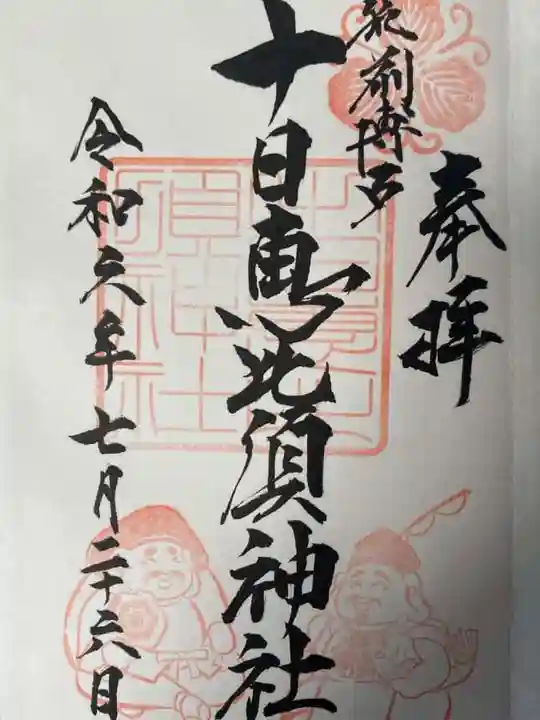 奉拝
筑前博多
十日恵比須神社
令和六年七月二十六日